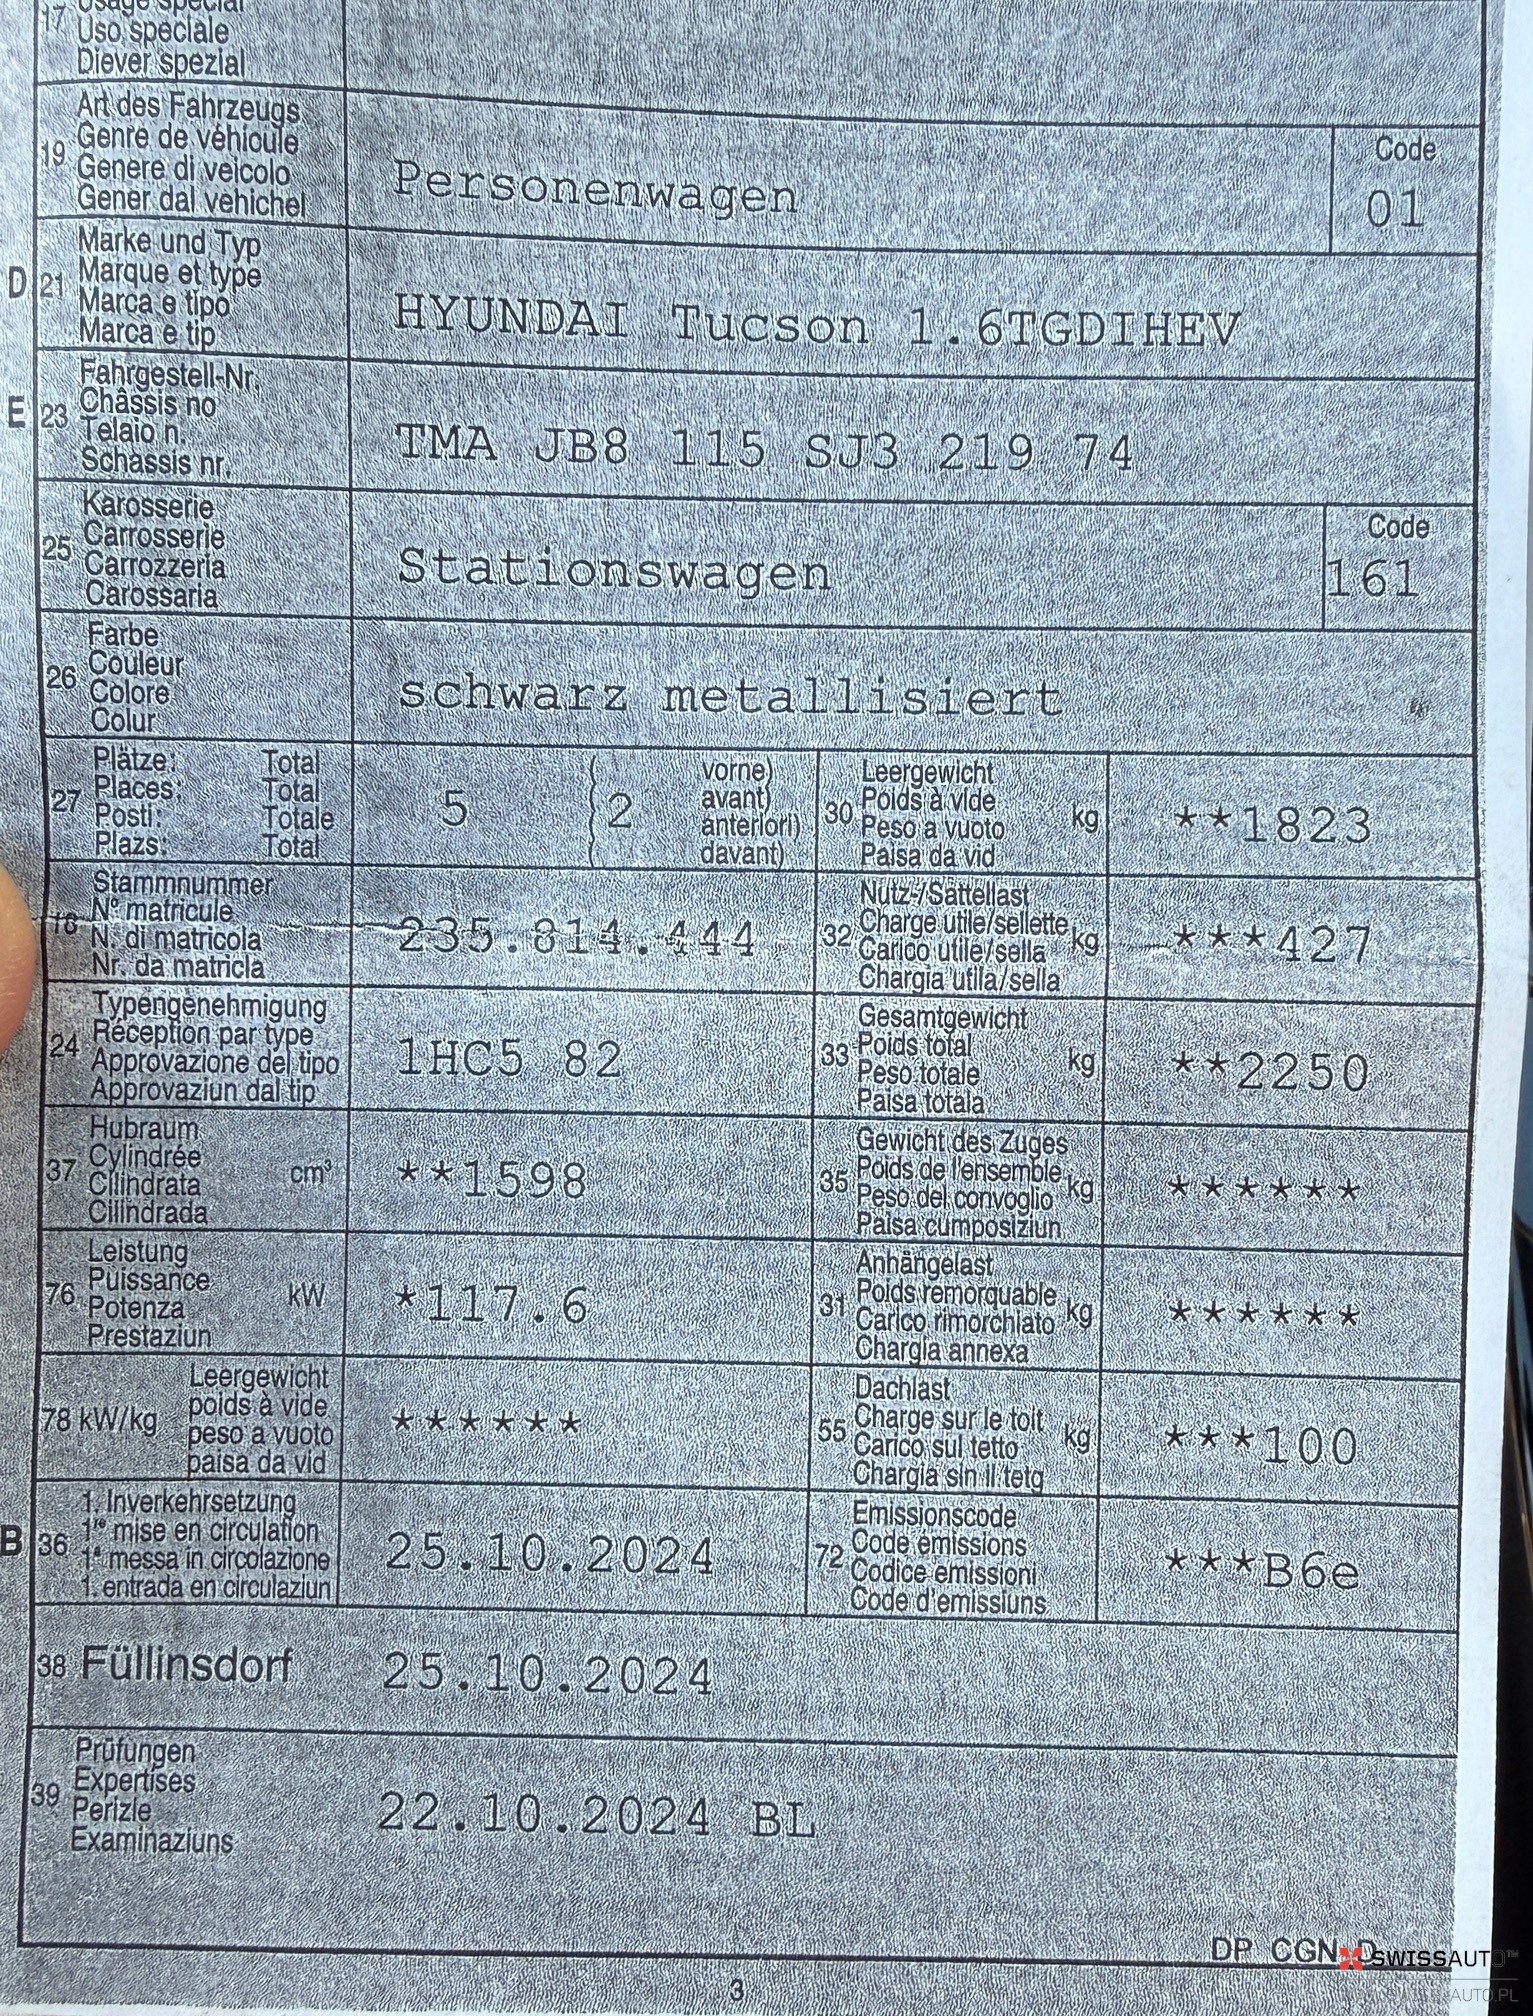 Usage spécial
17 Uso speciale
Diever spezial
Art des Fahrzeugs
19 Genre de véhicule
Genere di veicolo
Gener dal vehichel
Personenwagen
Code
01
D 21 Marke und Typ
Marque et type
Marca e tipo
Marca e tip
HYUNDAI Tucson 1.6TGDIHEV
E 23 Fahrgestell-Nr.
Châssis no
Telaio n.
Schassis nr.
TMA JB8 115 SJ3 219 74
25 Karosserie
Carrosserie
Carrozzeria
Carossaria
Stationswagen
Code
161
26 Farbe
Couleur
Colore
Colur
schwarz metallisiert
27 Plätze: Total
Places: Total
Posti: Totale
Plazs: Total
5 2
vorne)
avant)
anteriori)
davant)
30 Leergewicht
Poids à vide
Peso a vuoto
Paisa da vid
kg
**1823
18 Stammnummer
N° matricule
N. di matricola
Nr. da matricla
235.814.444
32 Nutz-/Sattellast
Charge utile/sellette
Carico utile/sella
Chargia utila/sella
kg
***427
24 Typengenehmigung
Réception par type
Approvazione del tipo
Approvaziun dal tip
1HC5 82
33 Gesamtgewicht
Poids total
Peso totale
Paisa totala
kg
**2250
37 Hubraum
Cylindrée
Cilindrata
Cilindrada
cm³
**1598
35 Gewicht des Zuges
Poids de l'ensemble
Peso del convoglio
Paisa cumposiziun
kg
******
76 Leistung
Puissance
Potenza
Prestaziun
kW
*117.6
31 Anhängelast
Poids remorquable
Carico rimorchiato
Chargia annexa
kg
******
78 kW/kg
Leergewicht
poids à vide
peso a vuoto
paisa da vid
******
55 Dachlast
Charge sur le toit
Carico sul tetto
Chargia sin il tetg
kg
***100
B 36 1. Inverkehrsetzung
1re mise en circulation
1a messa in circolazione
1. entrada en circulaziun
25.10.2024
72 Emissionscode
Code émissions
Codice emissioni
Code d'emissiuns
***B6e
38 Füllinsdorf 25.10.2024
39 Prüfungen
Expertises
Perizie
Examinaziuns
22.10.2024 BL
DP CGN D
SWISSAUTO™
3